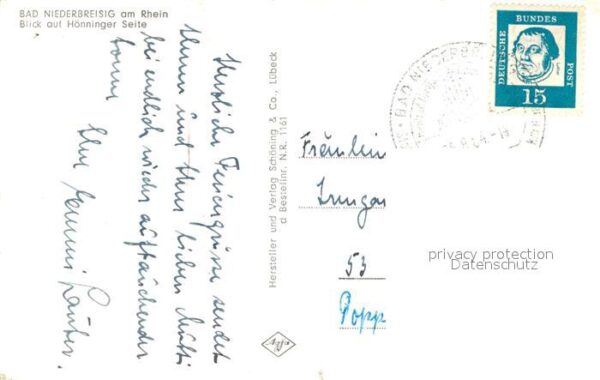 BAD NIEDERBREISIG am Rhein
Blick auf Hönninger Seite
Herzliche Feriengrüße sendet
Ihnen und Ihrer lieben Mutti
bei endlich wieder auftauchender
Sonne
Ihre
Hersteller und Verlag Schöning & Co., Lübeck
Bestellnr. N.R. 1161
DEUTSCHE
BUNDES
POST
15
BAD NIEDERB
Fräulein
53
Popp
privacy protection
Datenschutz